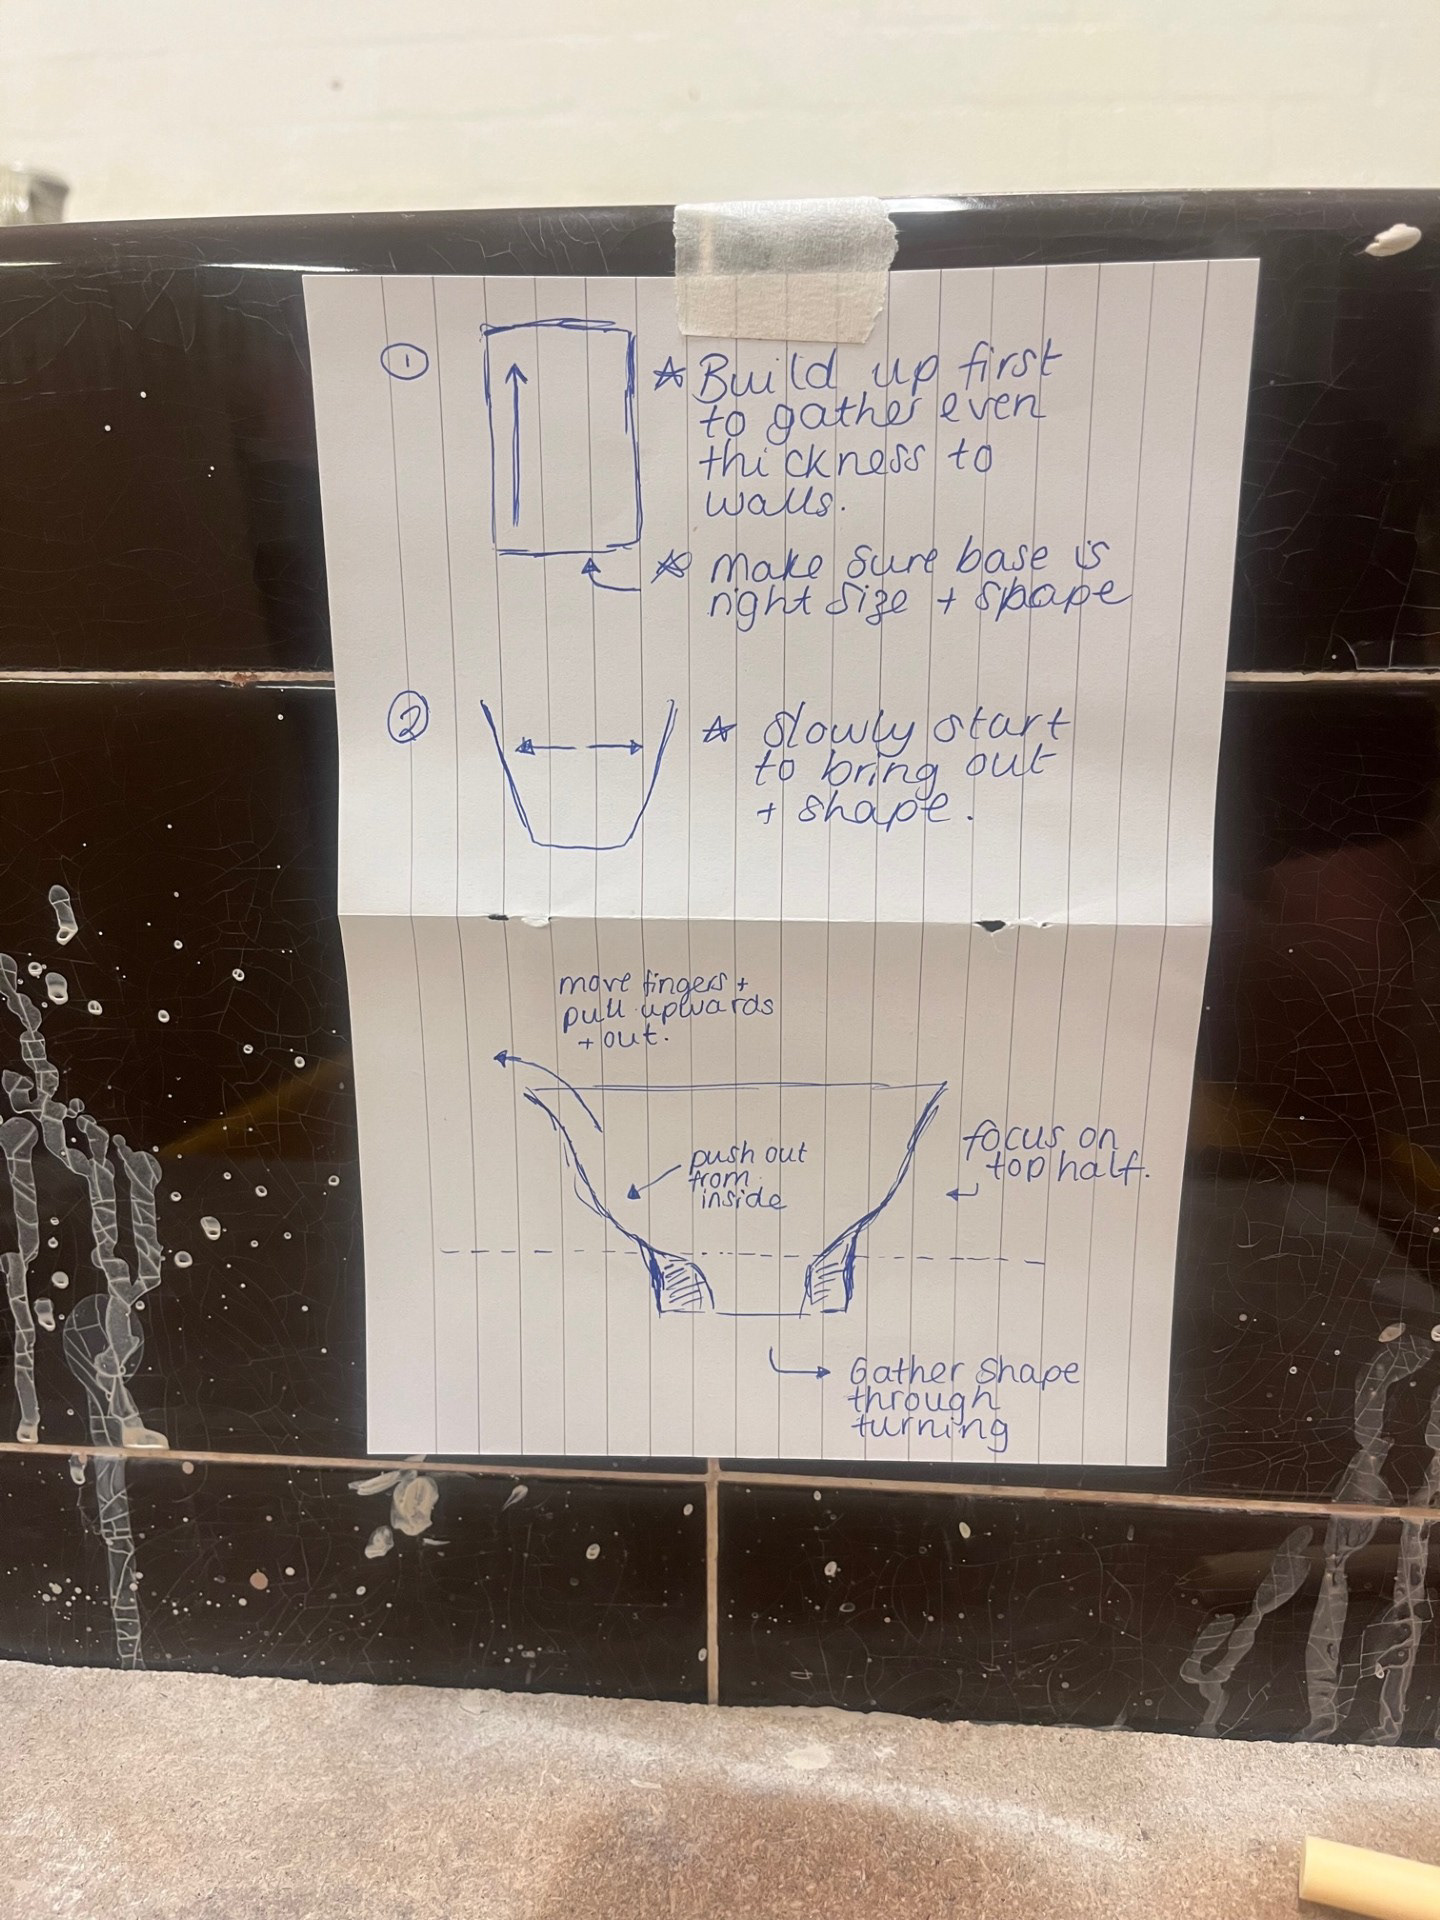 1
☆ Build up first
to gather even
thickness to
walls.
☆ Make sure base is
right size + shape
2
☆ Slowly start
to bring out
+ shape.
move fingers +
pull upwards
+ out.
push out
from
inside
focus on
top half.
Gather shape
through
turning